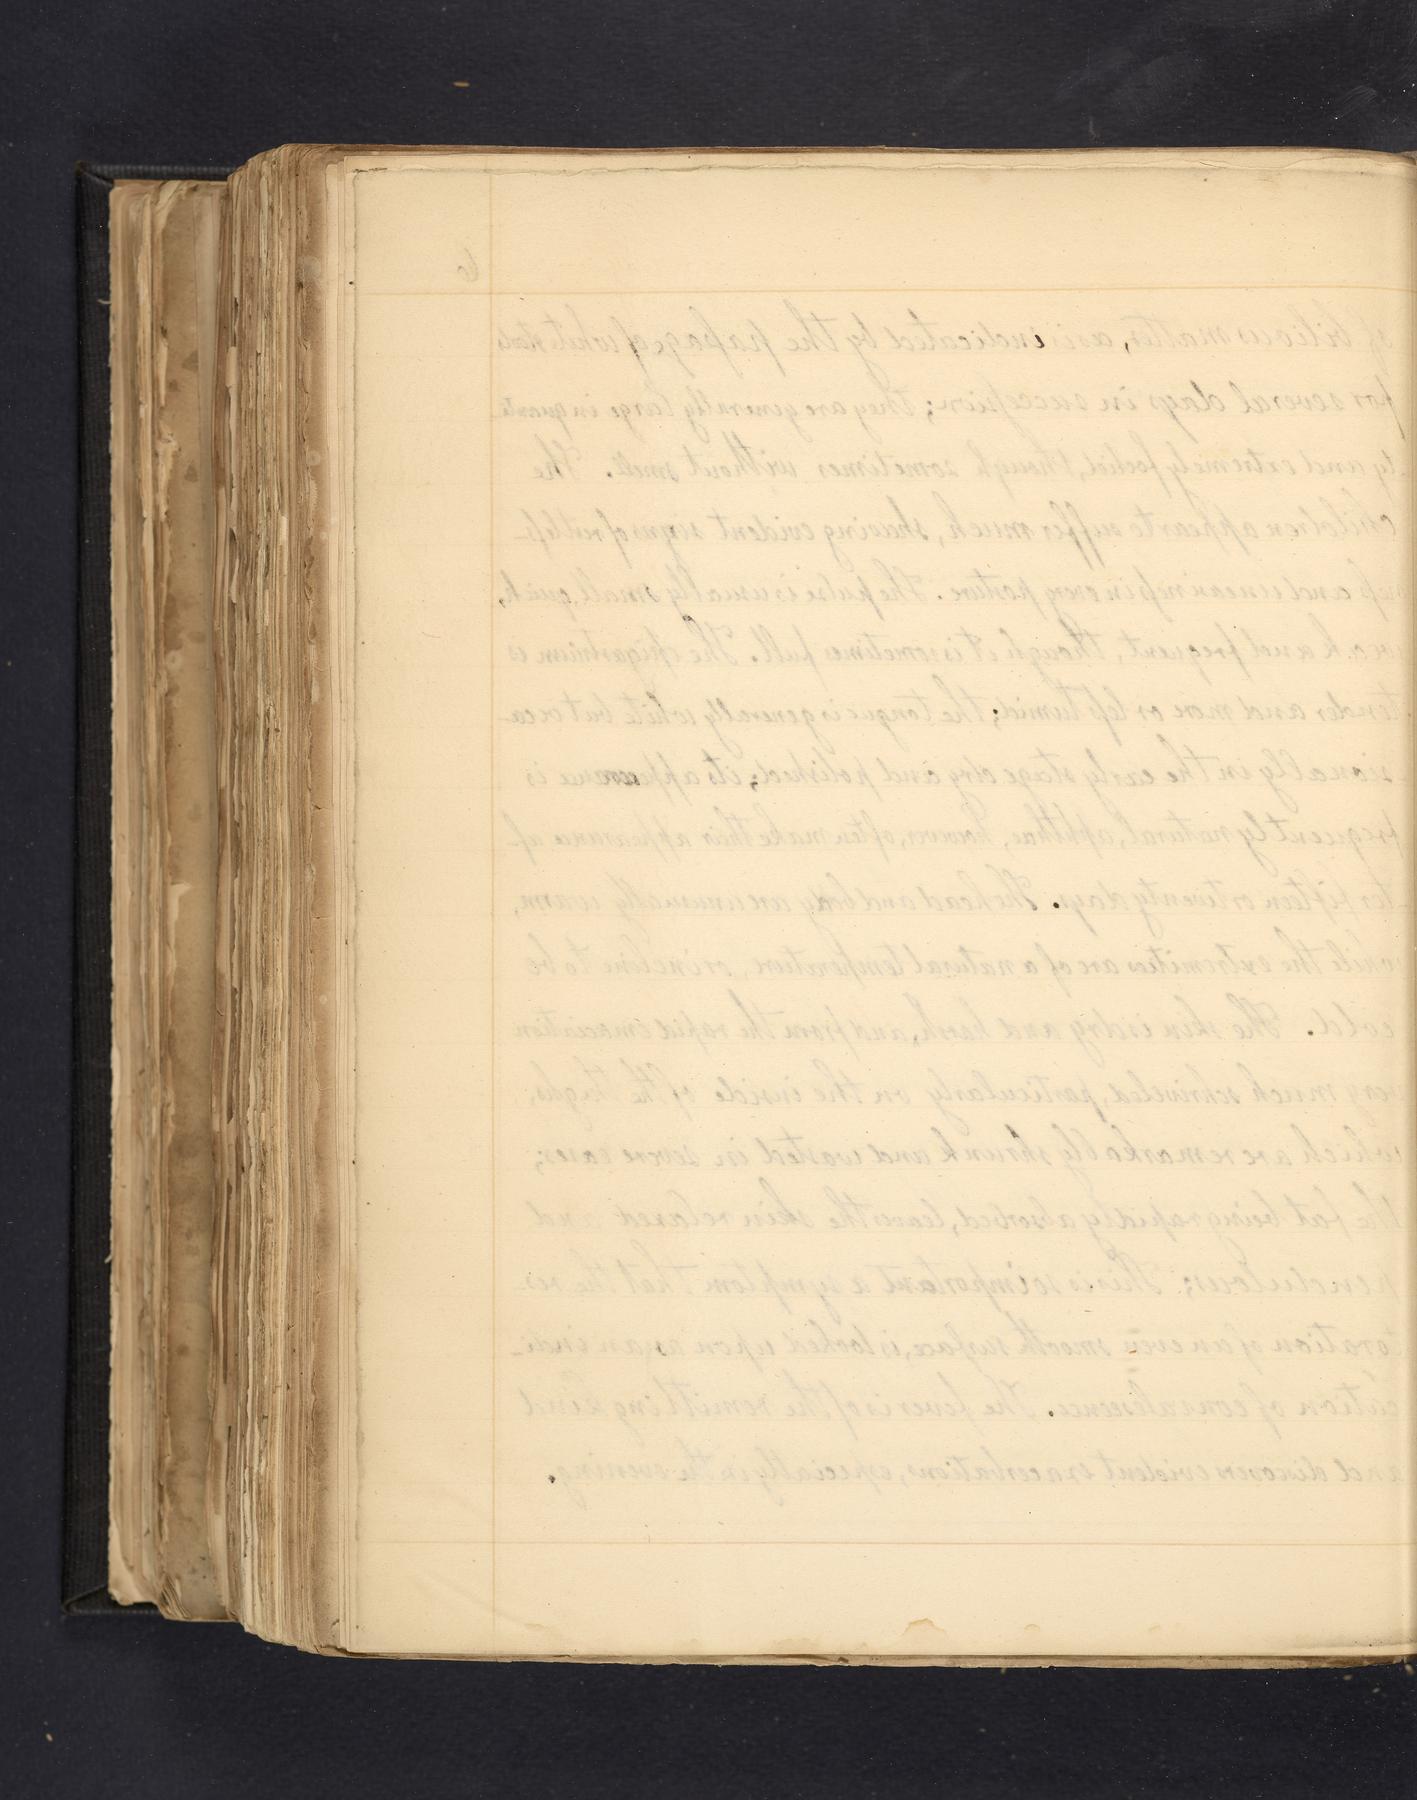 6
of bilious matter, as is indicated by the passage of white stools
for several days in succession; they are generally large in quanti-
ty and extremely foetid, though sometimes without smell. The
children appear to suffer much, shewing evident signs of restless-
ness and uneasiness in every posture. The pulse is usually small, quick,
weak and frequent, though it is sometimes full. The epigastrium is
tender and more or less tumid; the tongue is generally white but occa-
sionally in the early stage dry and polished; its appearance is
frequently natural, aphthae, however, often make their appearance af-
ter fifteen or twenty days. The head and body are unusually warm,
while the extremities are of a natural temperature, or incline to be
cold. The skin is dry and harsh, and from the rapid emaciation
very much schriveled, particularly on the inside of the thighs,
which are remarkably shrunk and wasted in severe cases;
the fat being rapidly absorbed, leaves the skin relaxed and
pendulous; This is so important a symptom that the res-
toration of an even smooth surface, is looked upon as an indi-
cation of convalescence. The fever is of the remitting kind
and discovers evident exacerbations, especially in the evening.